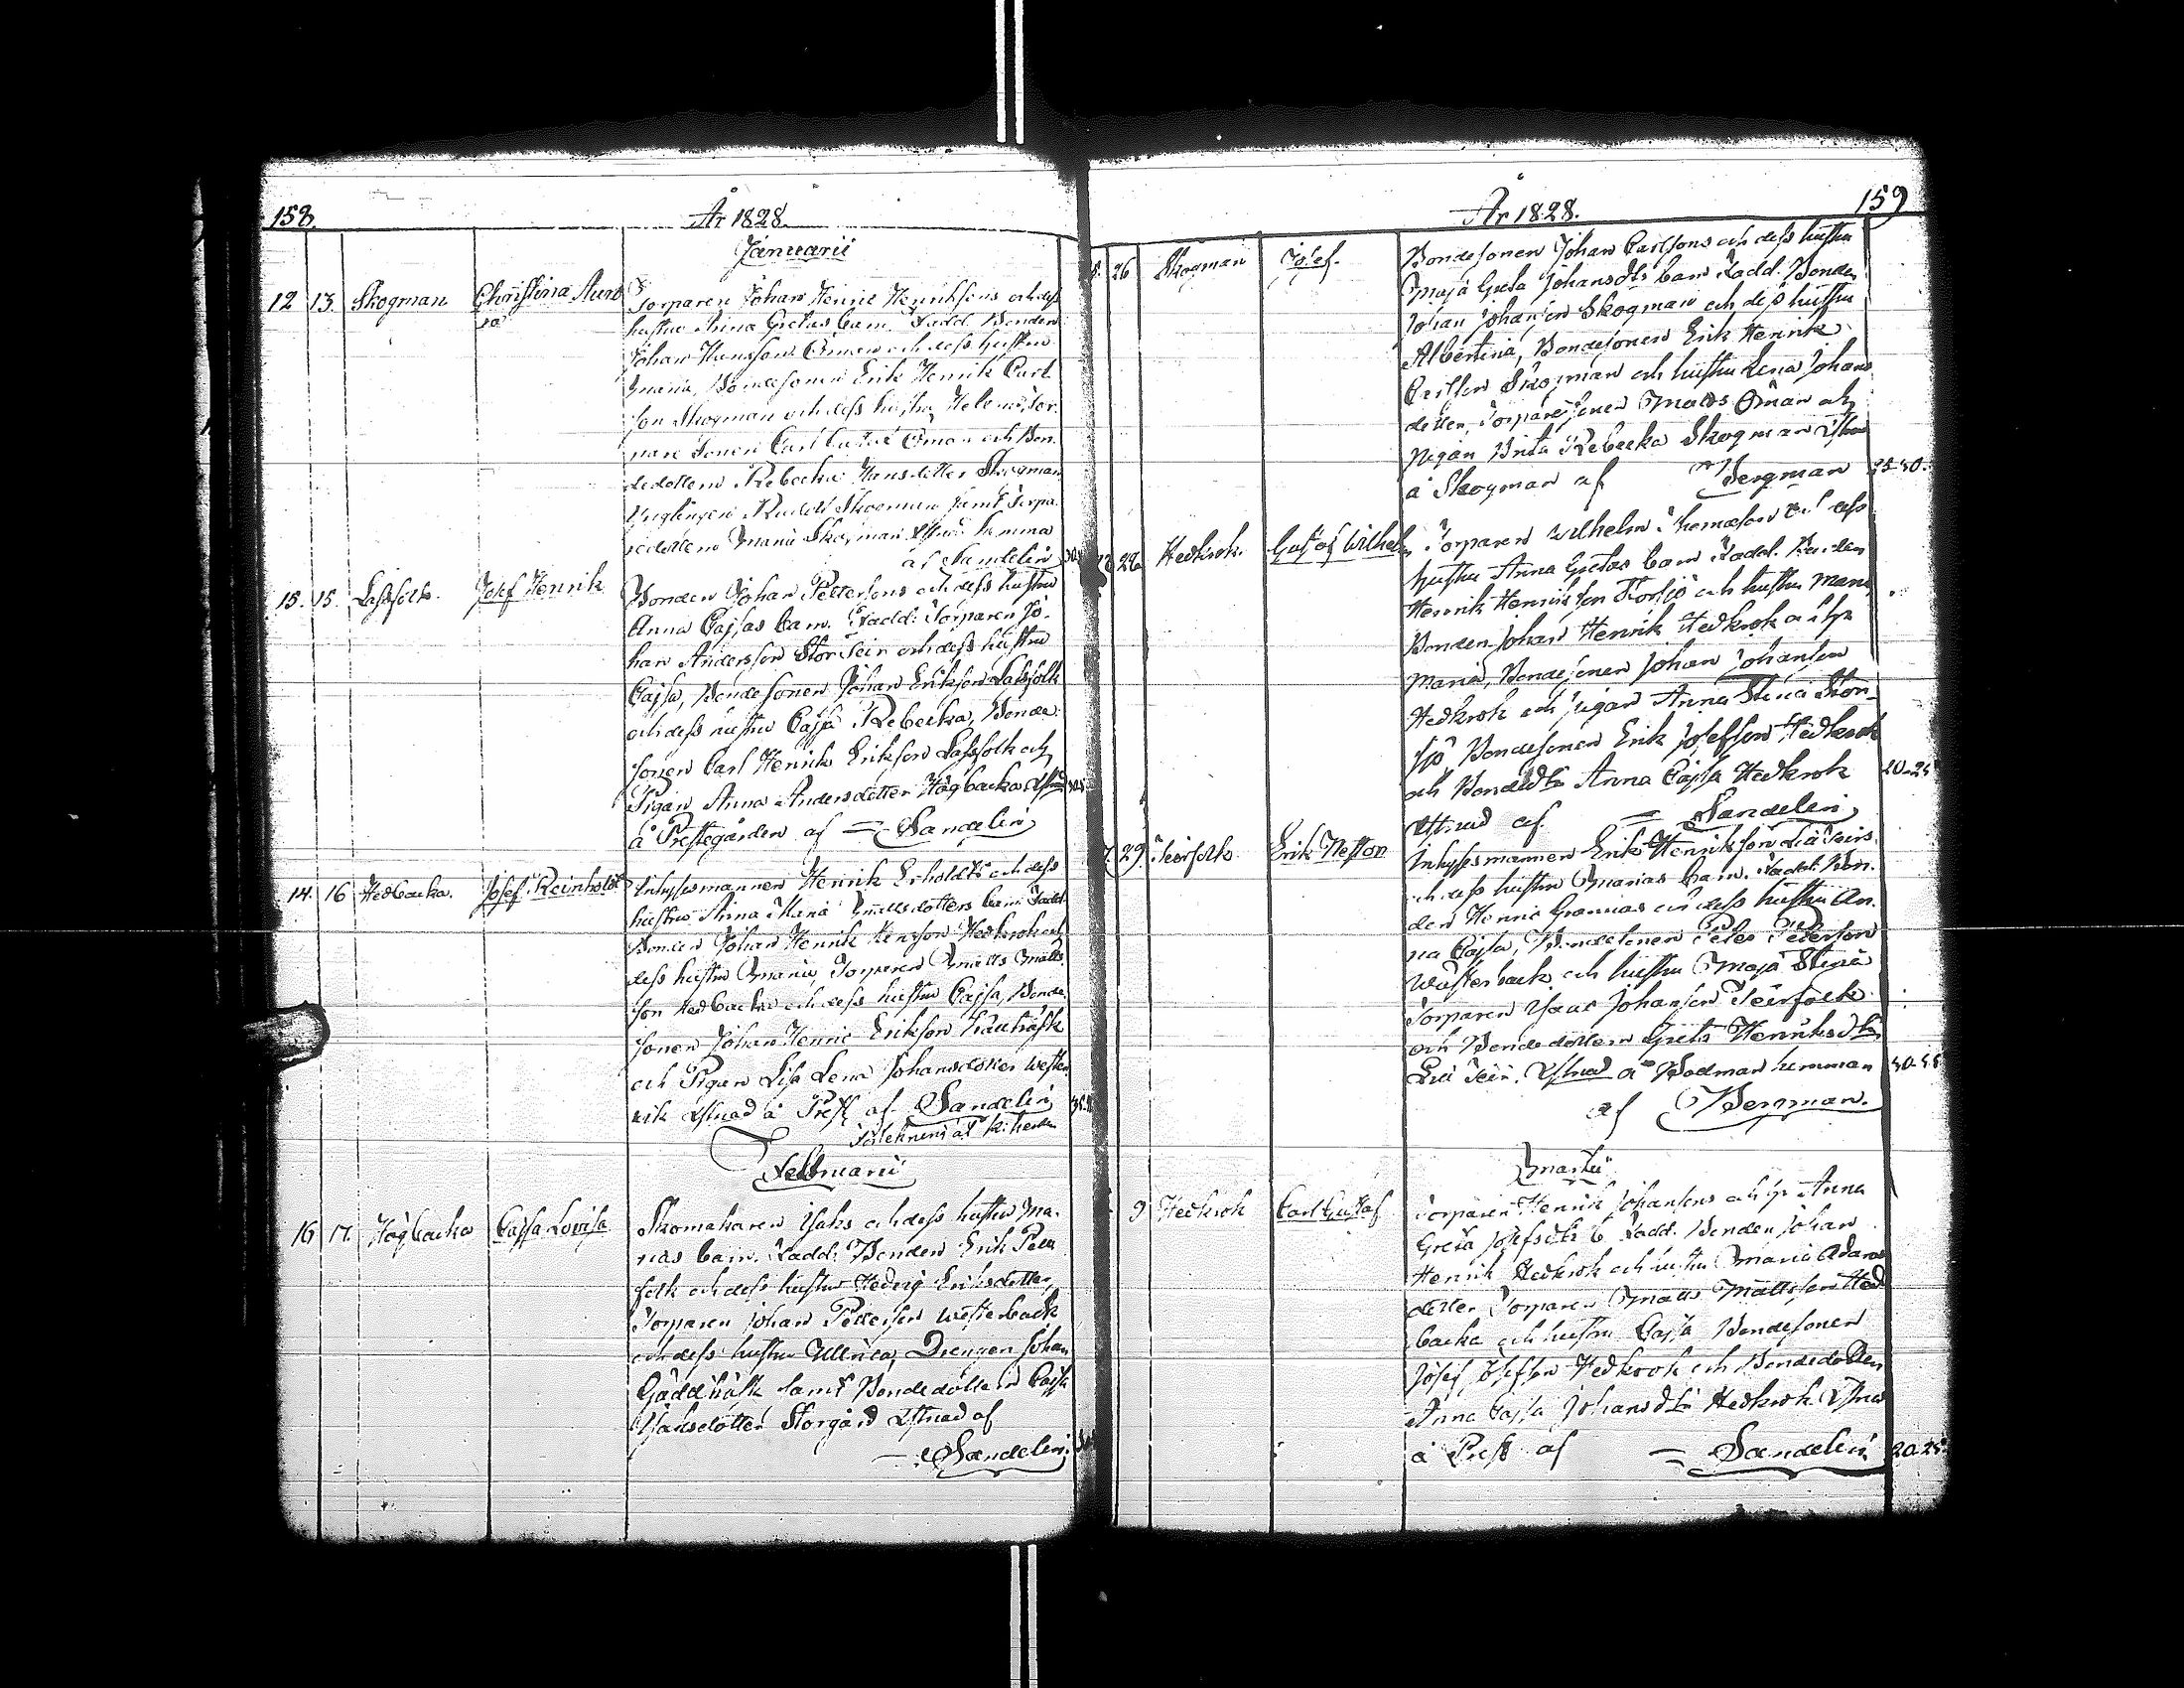 158.
År 1828.
Januarii
12 13. Skogman Christina Auro
ra
Torparen Johan Henric Henriksons och dess
hustru Anna Gretas barn. Fadd. Bonden
Johan Hansson Öman och dess hustru
Maria, Bondesonen Erik Henrik Carl
son Skogman och dess hustru Helena, Tor-
pare Sonen Carl Öman och Bon-
dedottern Rebecka Hansdotter Skogman
Ynglingen Skogman samt Torpa-
redottern Maria Skogman hemma
af Sandelin
15. 15. Lassfolk. Josef Henrik
Bonden Johan Pettersons och dess hustru
Anna Cajsas barn. Fadd: Torparen Jo-
han Anderson Stor Teir och dess hustru
Cajsa, Bondesonen Johan Erikson Lassfolk
och dess hustru Cajsa Rebecka, Bonde-
sonen Carl Henrik Erikson Lassfolk och
Pigan Anna Andersdotter Högbacka
å Prestegården af = Sandelin
14. 16 Hedbacka. Josef Reinholdt
Inhysesmannen Henrik Erholdts och dess
hustru Anna Maria Mattsdotters barn Fadd
Bonden Johan Henrik Hedkrok och
dess hustru Maria, Torparen Matts Matts
son Hedbacka och dess hustru Cajsa, Bonde-
sonen Johan Henric Erikson
och Pigan Lisa Lena Johansdotter Wester
vik å Prest af Sandelin
Februarii
16 17. Högbacka Cajsa Lovisa
Skomakaren Isaks och dess hustru Ma-
rias barn. Fadd: Bonden Erik Pell
folk och dess hustru Hedvig Eriksdotter,
Torparen Johan Petterson Westerback
och dess hustru Ullrica, Drengen Johan
Gäddträsk samt Bondedottern Cajsa
Isaksdotter Storgård af
= Sandelin
159
År 1828.
26 Skogman Josef.
Bondesonen Johan Carlsons och dess hustru
Maja Greta Johansdts barn Fadd. Bonden
Johan Johanson Skogman och dess hustru
Albertina, Bondesonen Erik Henrik
Carlson Skogman och hustru Lena Johans
dotter, Torparesonen Matts Öman och
Pigan Brita Rebecka Skogman
å Skogman af Bergman 25-30.
28 Hedkrok. Gustaf Wilhelm
Torparen Wilhelm Thomason och dess
hustru Anna Gretas barn Fadd. Bonden
Henrik Henrikson Storsjö och hustru Maria
Bonden Johan Henrik Hedkrok och h
Maria, Bondesonen Johan Johanson
Hedkrok och pigan Anna Stina Stor-
sjö, Bondesonen Erik Josefson Hedkrok
och Bondedtr Anna Cajsa Hedkrok 20-25
af = Sandelin
29. Teirfolk Erik Neston
Inhysesmannen Erik Henrikson Lill Teirs
och dess hustru Marias barn. Fadd. Bon-
den Henric Grannas och dess hustru An-
na Cajsa, Bondesonen Peter Peterson
Westerback och hustru Maja Stina
Torparen Isaac Johanson Teirfolk
och Bondedottern Greta Henriksdtr
Lill Teir. å Bodman hemman 30-35
af Bergman.
Martii
9 Hedkrok Carl Gustaf
Torparen Henrik Johansons och h Anna
Greta Josefsdts b Fadd. Bonden Johan
Henrik Hedkrok och hustru Maria Adams
dotter Torparen Matts Mattsson Hed
backa och hustru Cajsa Bondesonen
Josef Josefson Hedkrok och Bondedottern
Anna Cajsa Johansdtr Hedkrok
å Prest af = Sandelin 20-25.